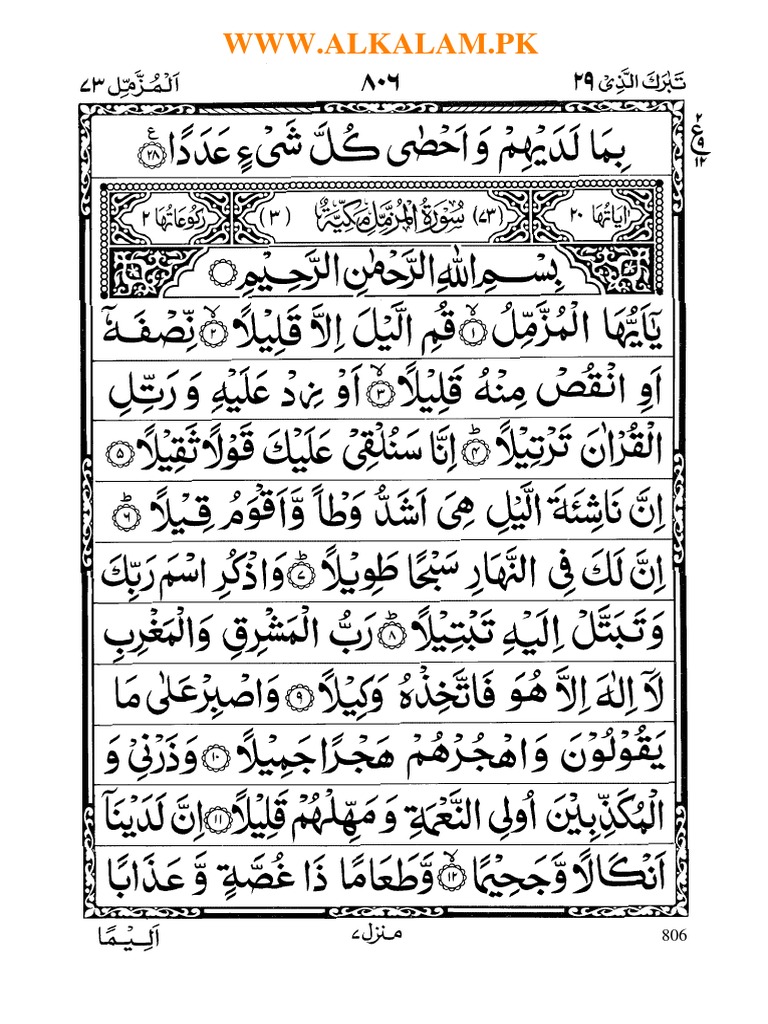 WWW.ALKALAM.PK
تَبٰرَكَ الَّذِیْ ۲۹
۸۰۶
اَلْمُزَّمِّل ۷۳
بِمَا لَدَیْهِمْ وَاَحْصٰی كُلَّ شَیْءٍ عَدَدًا ۲۸
ع
۲
ع ۹
۱۲
اٰیَاتُهَا ۲۰ (۷۳) سُوْرَةُ الْمُزَّمِّلِ مَكِّیَّةٌ (۳) رُكُوْعَاتُهَا ۲
بِسْمِ اللّٰهِ الرَّحْمٰنِ الرَّحِیْمِ
یٰۤاَیُّهَا الْمُزَّمِّلُ ۱ قُمِ الَّیْلَ اِلَّا قَلِیْلًا ۲ نِّصْفَهٗۤ
اَوِ انْقُصْ مِنْهُ قَلِیْلًا ۳ اَوْ زِدْ عَلَیْهِ وَرَتِّلِ
الْقُرْاٰنَ تَرْتِیْلًا ۴ اِنَّا سَنُلْقِیْ عَلَیْكَ قَوْلًا ثَقِیْلًا ۵
اِنَّ نَاشِئَةَ الَّیْلِ هِیَ اَشَدُّ وَطْاً وَّاَقْوَمُ قِیْلًا ۶
اِنَّ لَكَ فِی النَّهَارِ سَبْحًا طَوِیْلًا ۷ وَاذْكُرِ اسْمَ رَبِّكَ
وَتَبَتَّلْ اِلَیْهِ تَبْتِیْلًا ۸ رَبُّ الْمَشْرِقِ وَالْمَغْرِبِ
لَاۤ اِلٰهَ اِلَّا هُوَ فَاتَّخِذْهُ وَكِیْلًا ۹ وَاصْبِرْ عَلٰی مَا
یَقُوْلُوْنَ وَاهْجُرْهُمْ هَجْرًا جَمِیْلًا ۱۰ وَذَرْنِیْ وَ
الْمُكَذِّبِیْنَ اُولِی النَّعْمَةِ وَمَهِّلْهُمْ قَلِیْلًا ۱۱ اِنَّ لَدَیْنَاۤ
اَنْكَالًا وَّجَحِیْمًا ۱۲ وَّطَعَامًا ذَا غُصَّةٍ وَّعَذَابًا
اَلِیْمًا
منزل ۷
806